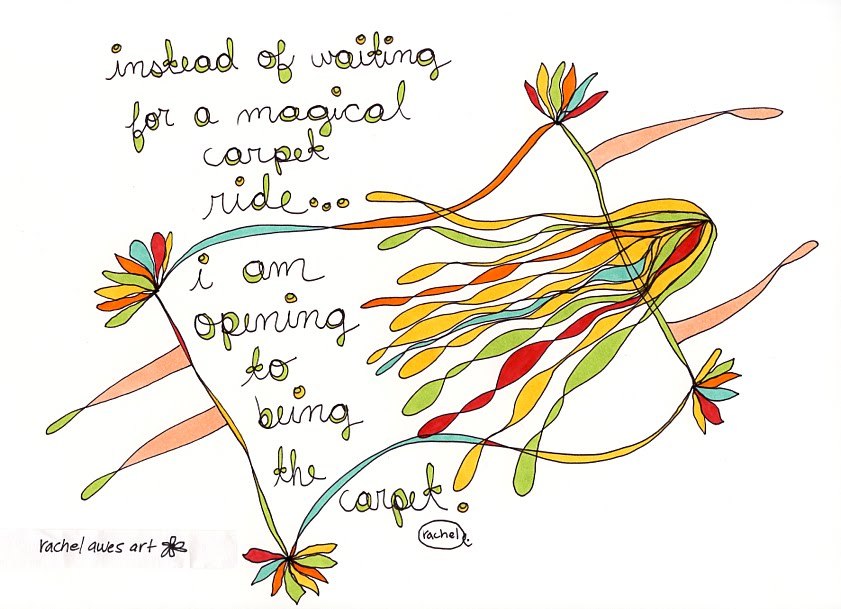 instead of waiting
for a magical
carpet
ride...
i am
opening
to
being
the
carpet.
rachel.
rachel awes art